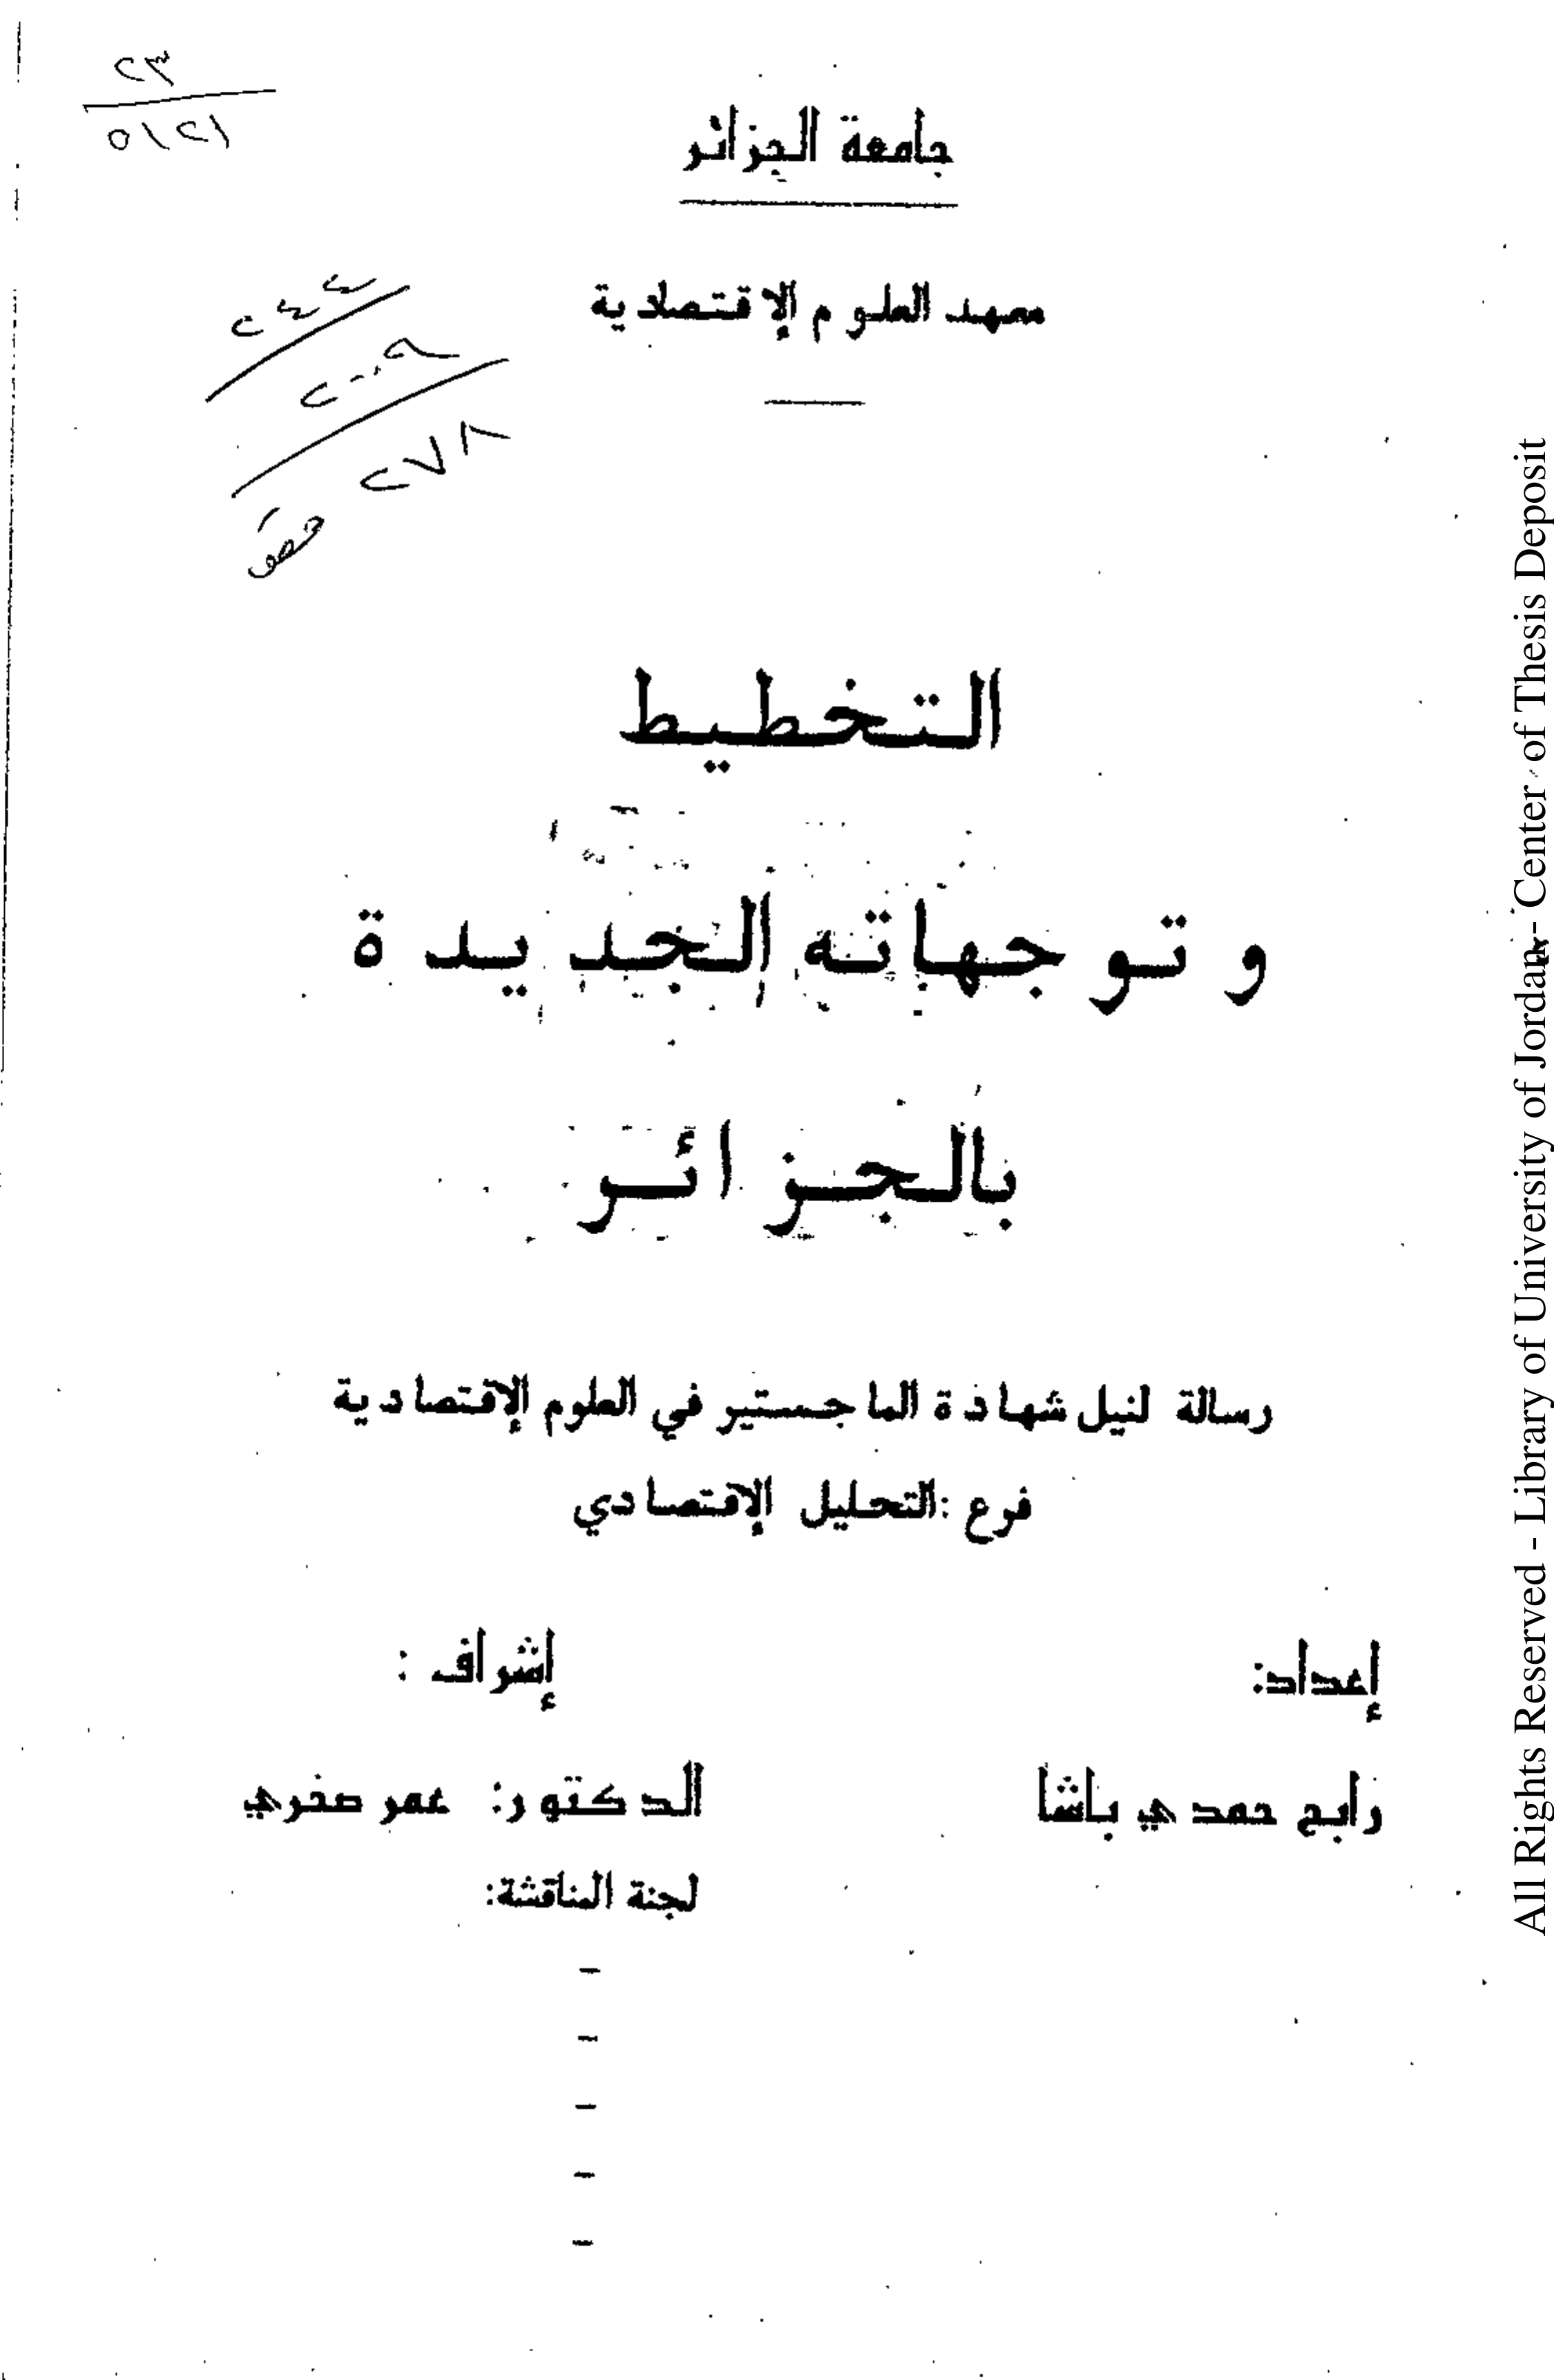 جامعة الجزائر
معهد العلوم الإقتصادية
التخطيط
و توجهاته الجديدة
بالجزائر
رسالة لنيل شهادة الماجستير في العلوم الإقتصادية
فرع : التحليل الإقتصادي
إعداد: إشراف :
رابح حمدي باشا الدكتور: عمر صخري
لجنة المناقشة:
-
-
-
-
-
All Rights Reserved - Library of University of Jordan - Center of Thesis Deposit